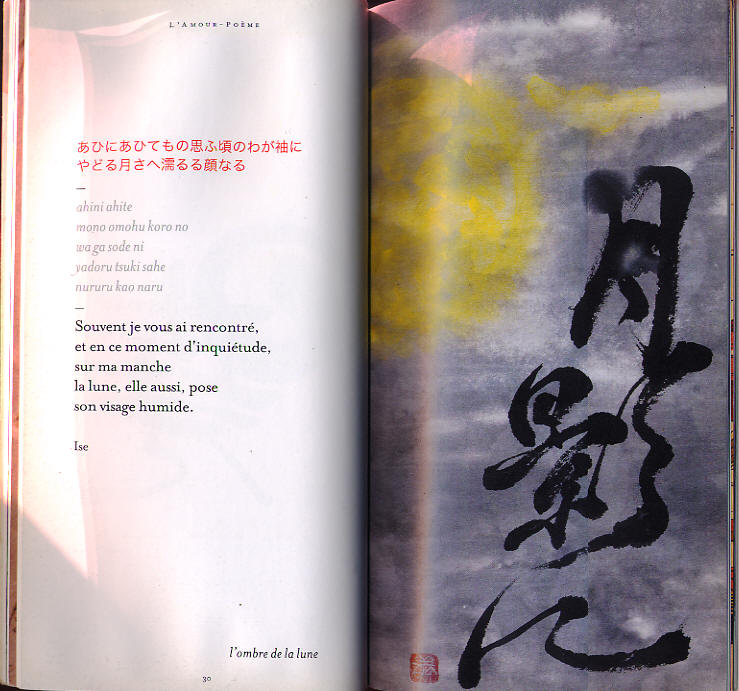 L'Amour-Poème
あひにあひてもの思ふ頃のわが袖に
やどる月さへ濡るる顔なる
ahini ahite
mono omohu koro no
wa ga sode ni
yadoru tsuki sahe
nururu kao naru
Souvent je vous ai rencontré,
et en ce moment d'inquiétude,
sur ma manche
la lune, elle aussi, pose
son visage humide.
Ise
l'ombre de la lune
30
月
影